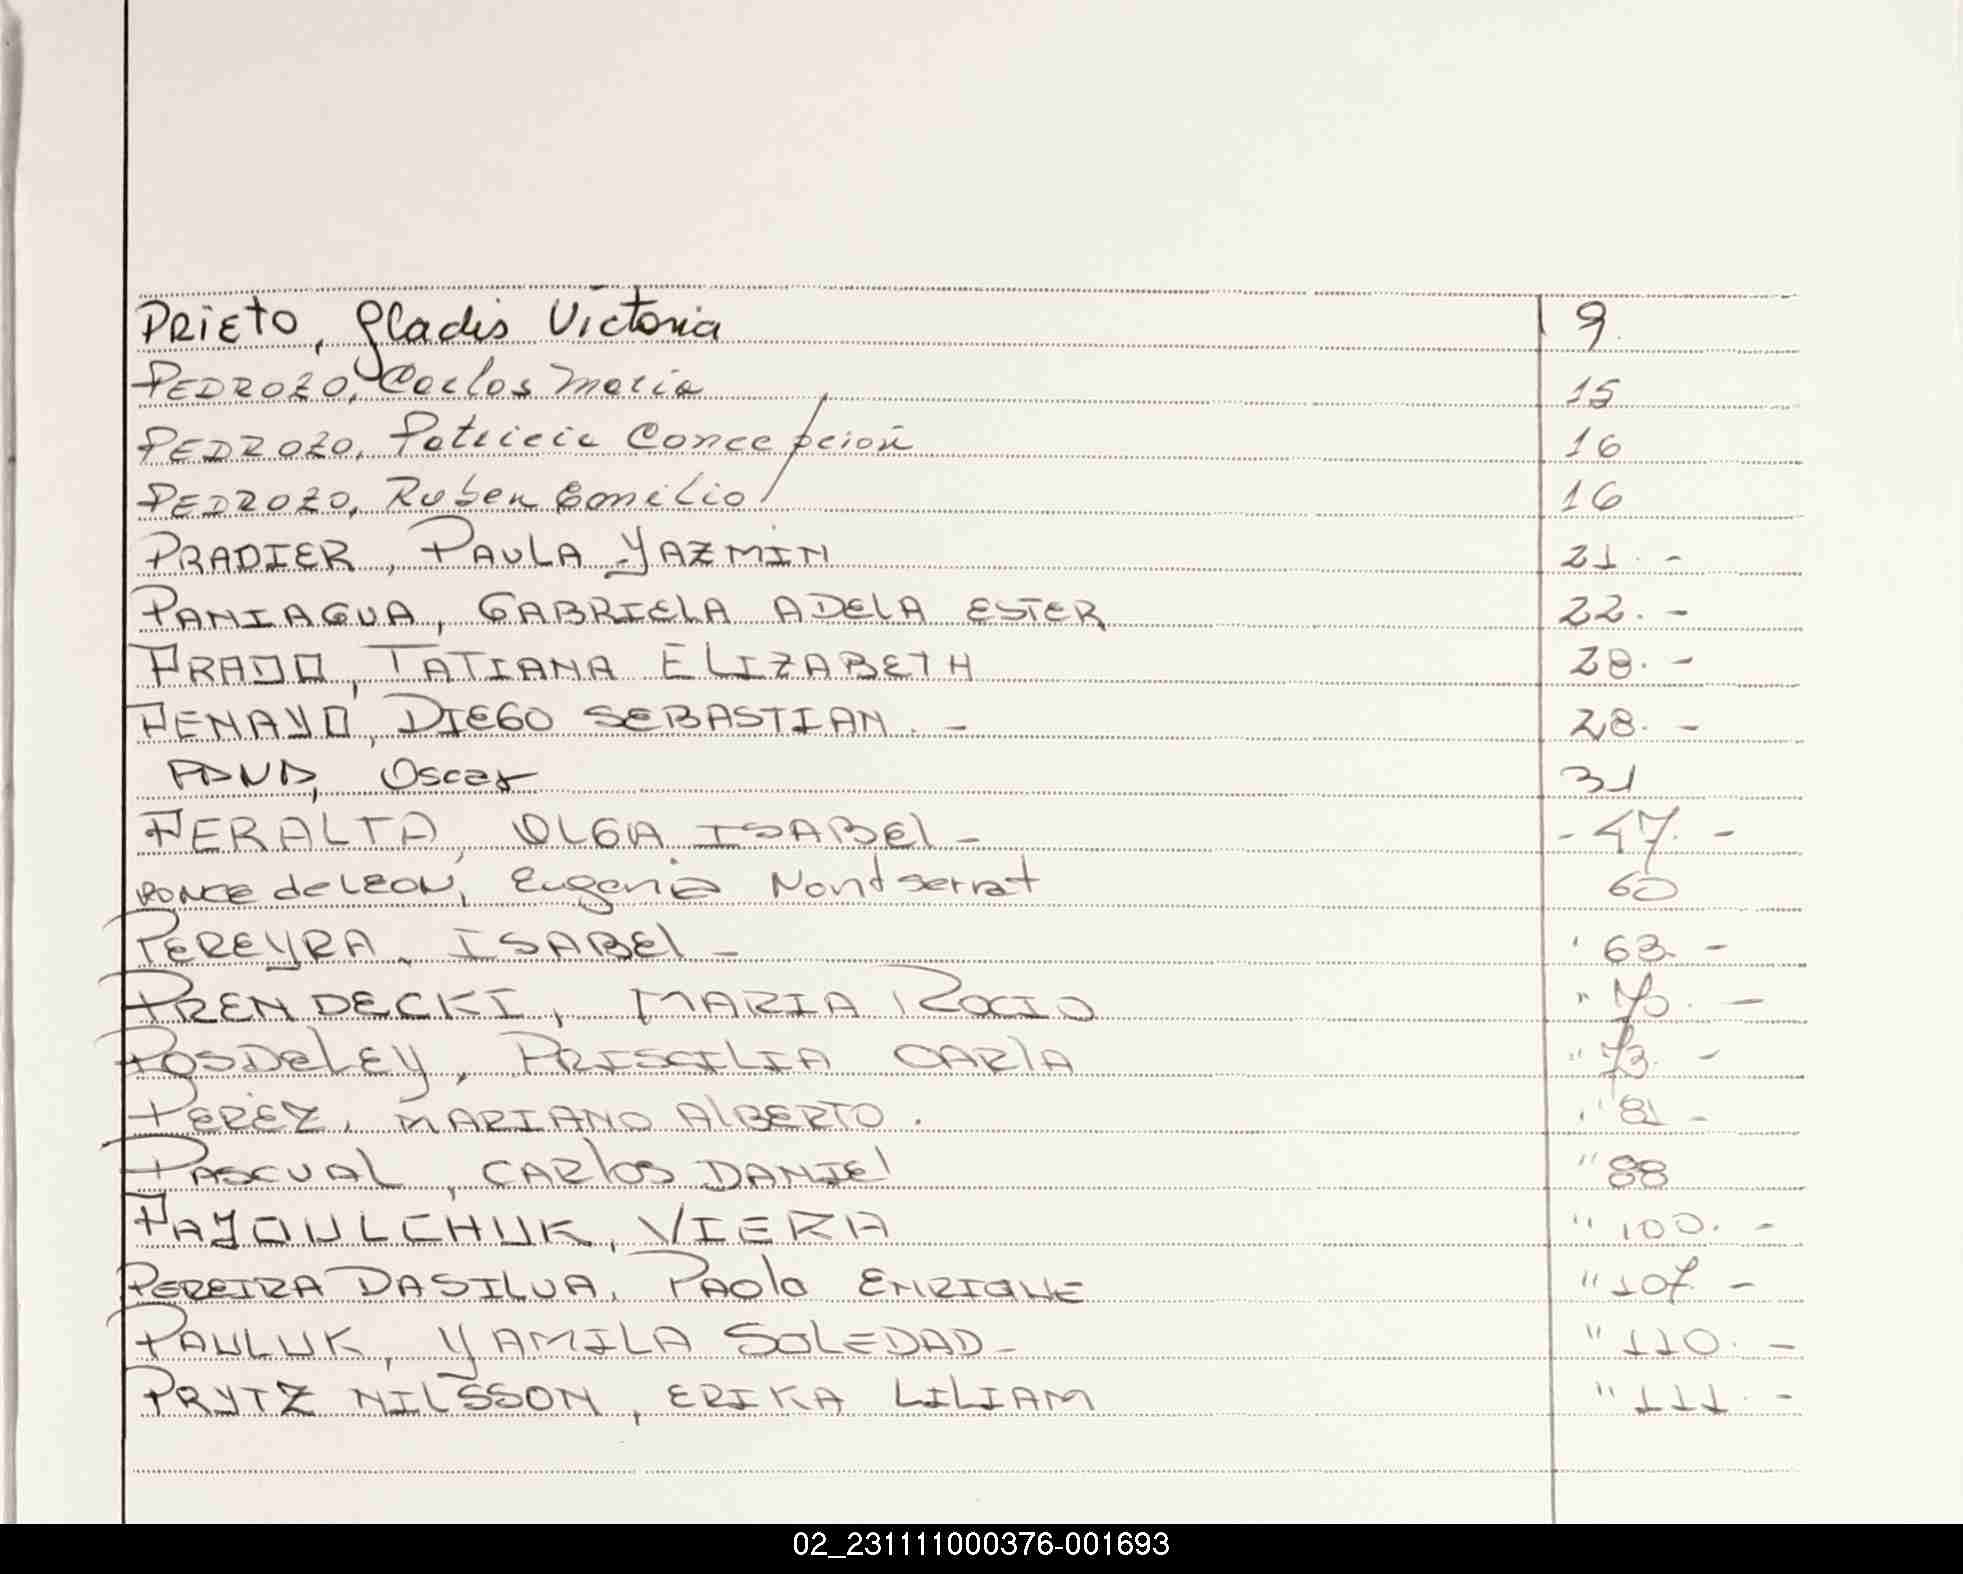 PRIETO, Gladis Victoria 9.
PEDROZO, Carlos Maria 15
PEDROZO, Patricia Concepcion 16
PEDROZO, Ruben Emilio 16
PRADIER, PAULA YAZMIN 21. -
PANIAGUA, GABRIELA ADELA ESTER 22. -
PRADO, TATIANA ELIZABETH 28. -
PENAYO, DIEGO SEBASTIAN. - 28. -
Oscar 31
PERALTA, OLGA ISABEL - - 47. -
PONCE de LEON, Eugenia Montserrat 60
PEREYRA, ISABEL - " 63. -
PRENDECKI, MARIA ROCIO " 70. -
POSDELEY, PRISCILIA CARLA " 73. -
PEREZ, MARIANO ALBERTO. " 81 -
PASCUAL, CARLOS DANIEL " 88
PAJOULCHUK, VIERA " 100. -
PEREIRA DASILVA, PAOLO ENRIQUE " 107. -
PAULUK, YAMILA SOLEDAD - " 110. -
PRYTZ NILSSON, ERIKA LILIAM " 111. -
02_231111000376-001693